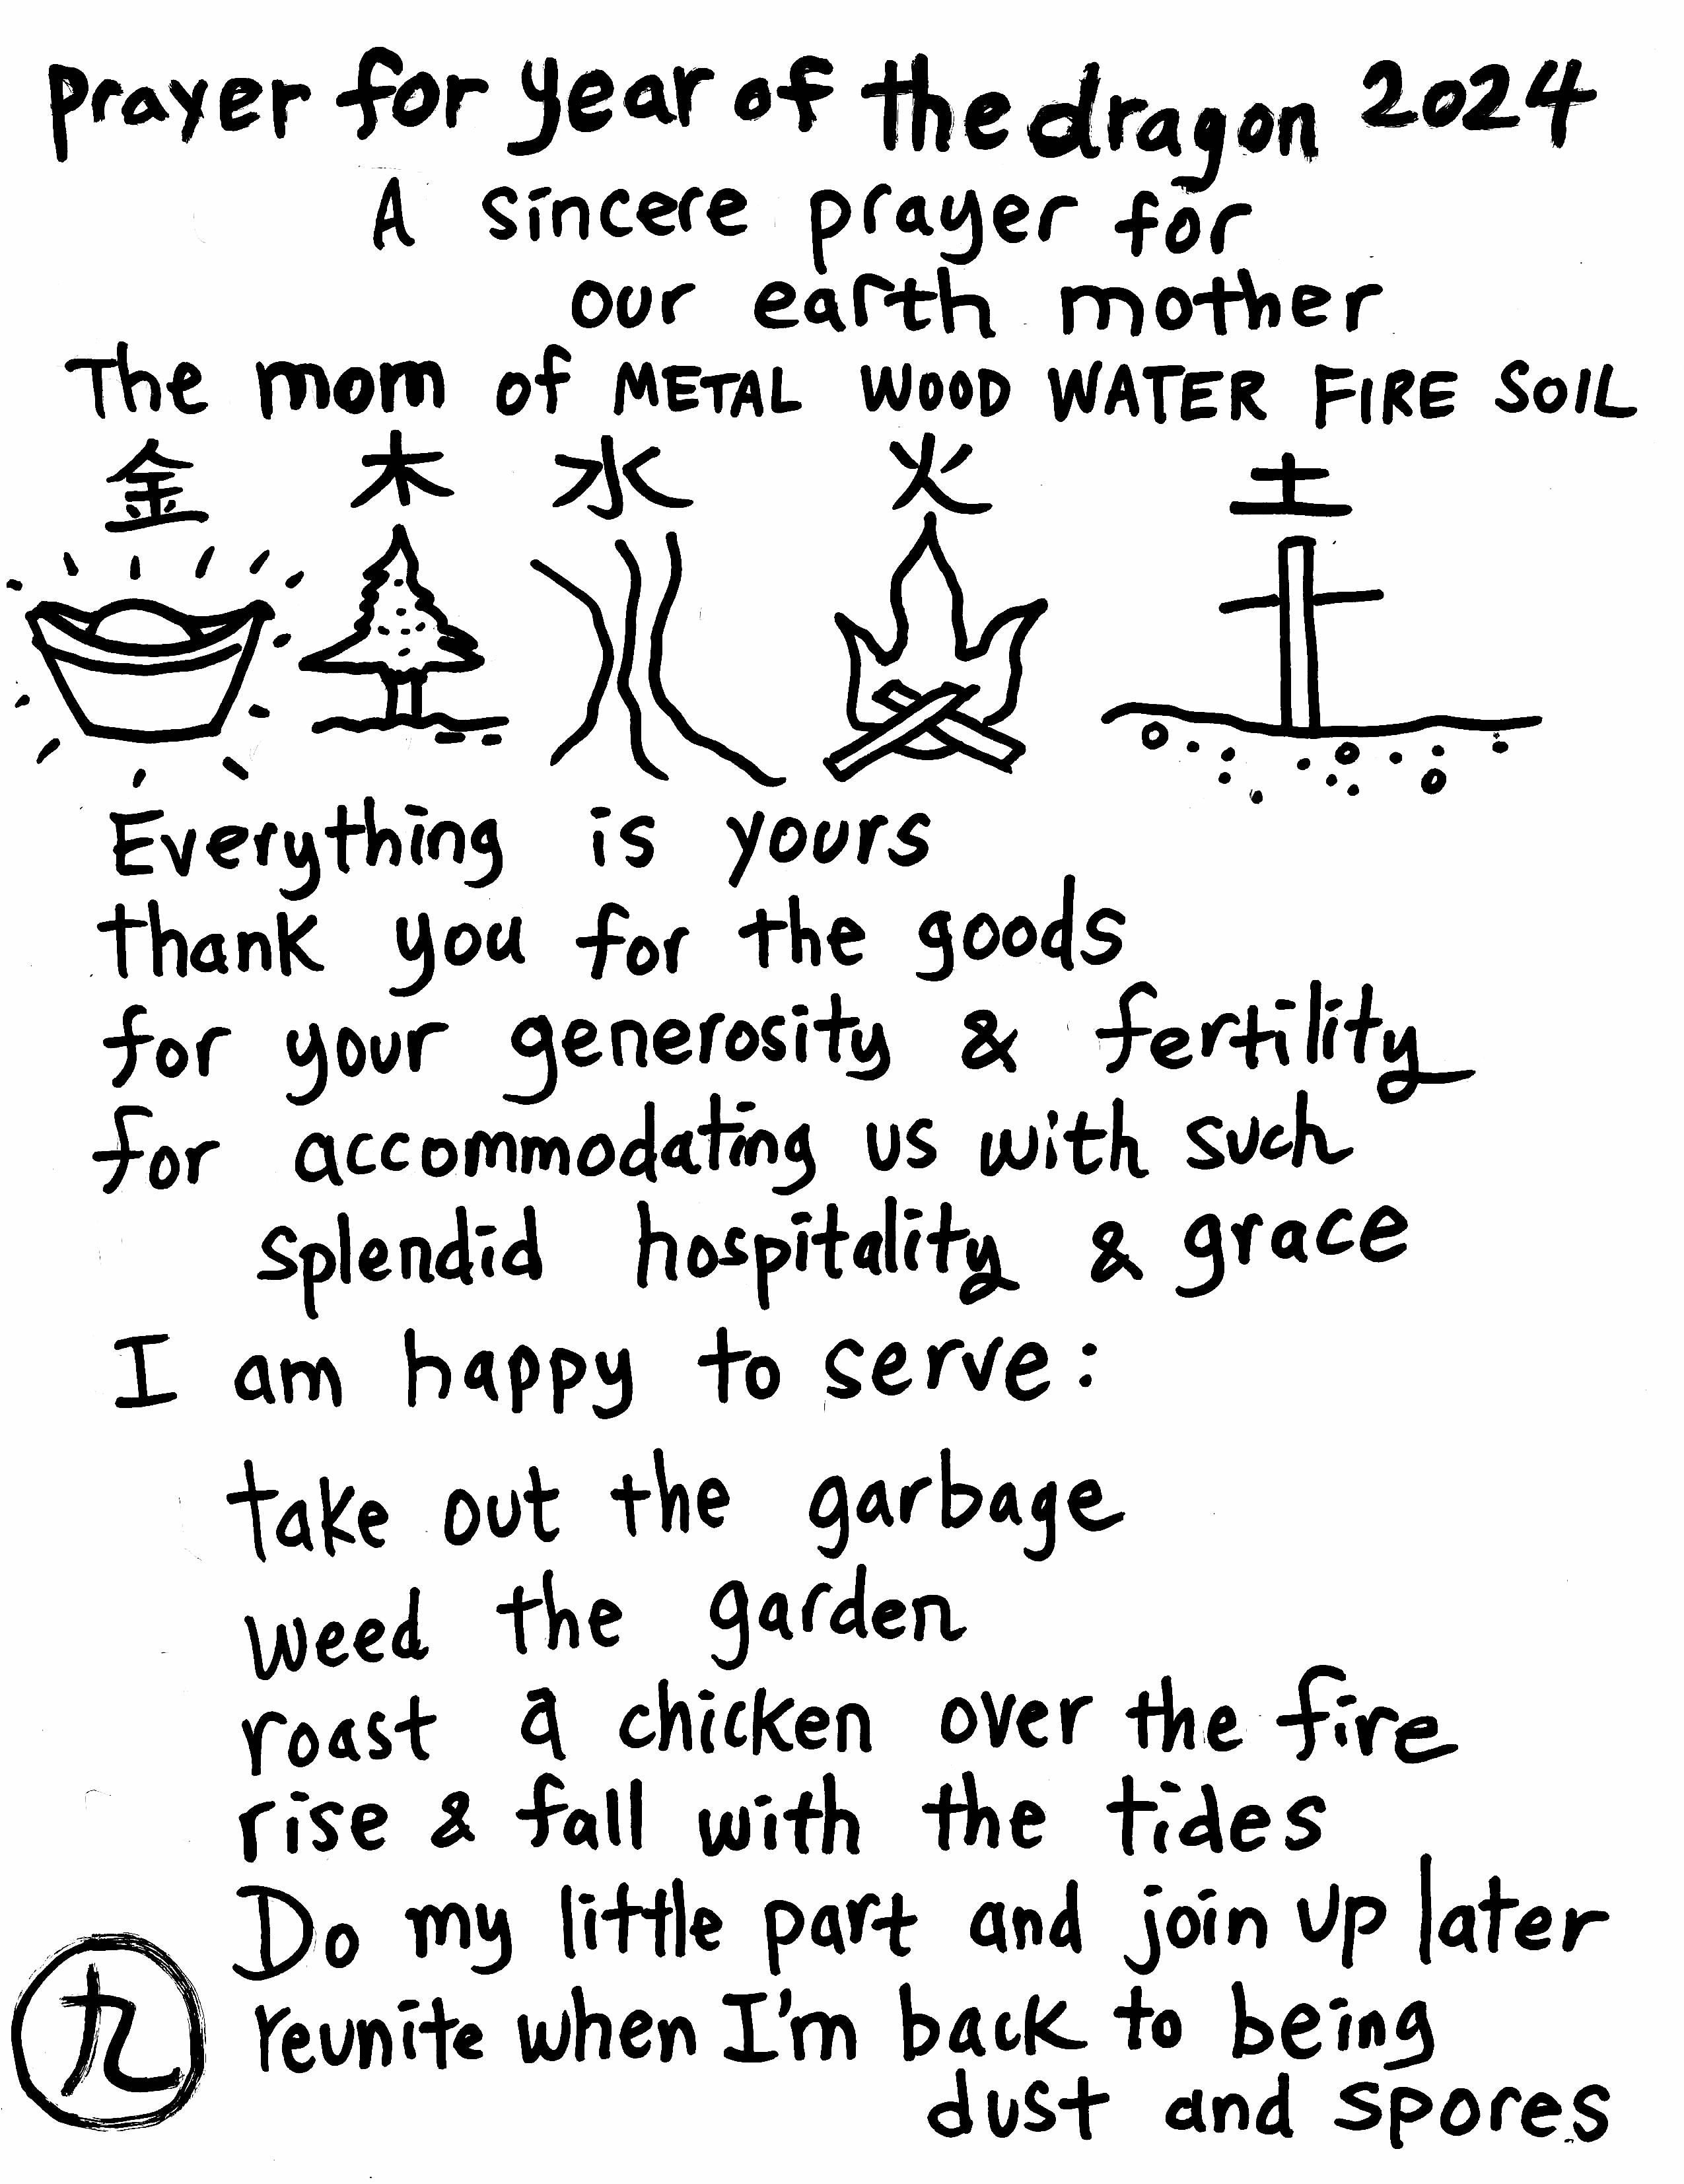 prayer for year of the dragon 2024
A sincere prayer for
our earth mother
The mom of METAL WOOD WATER FIRE SOIL
金 木 水 火 土
Everything is yours
thank you for the goods
for your generosity & fertility
for accommodating us with such
splendid hospitality & grace
I am happy to serve:
take out the garbage
weed the garden
roast a chicken over the fire
rise & fall with the tides
Do my little part and join up later
reunite when I'm back to being
dust and spores
九